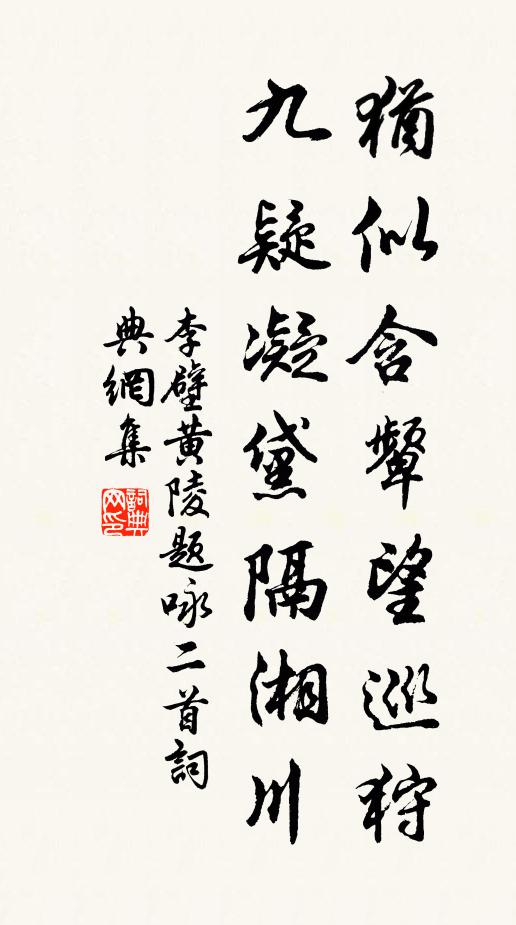 猶似含顰望巡狩
九疑凝黛隔湘川
李壁黄陵题咏二首詞
典網集
詞典網印